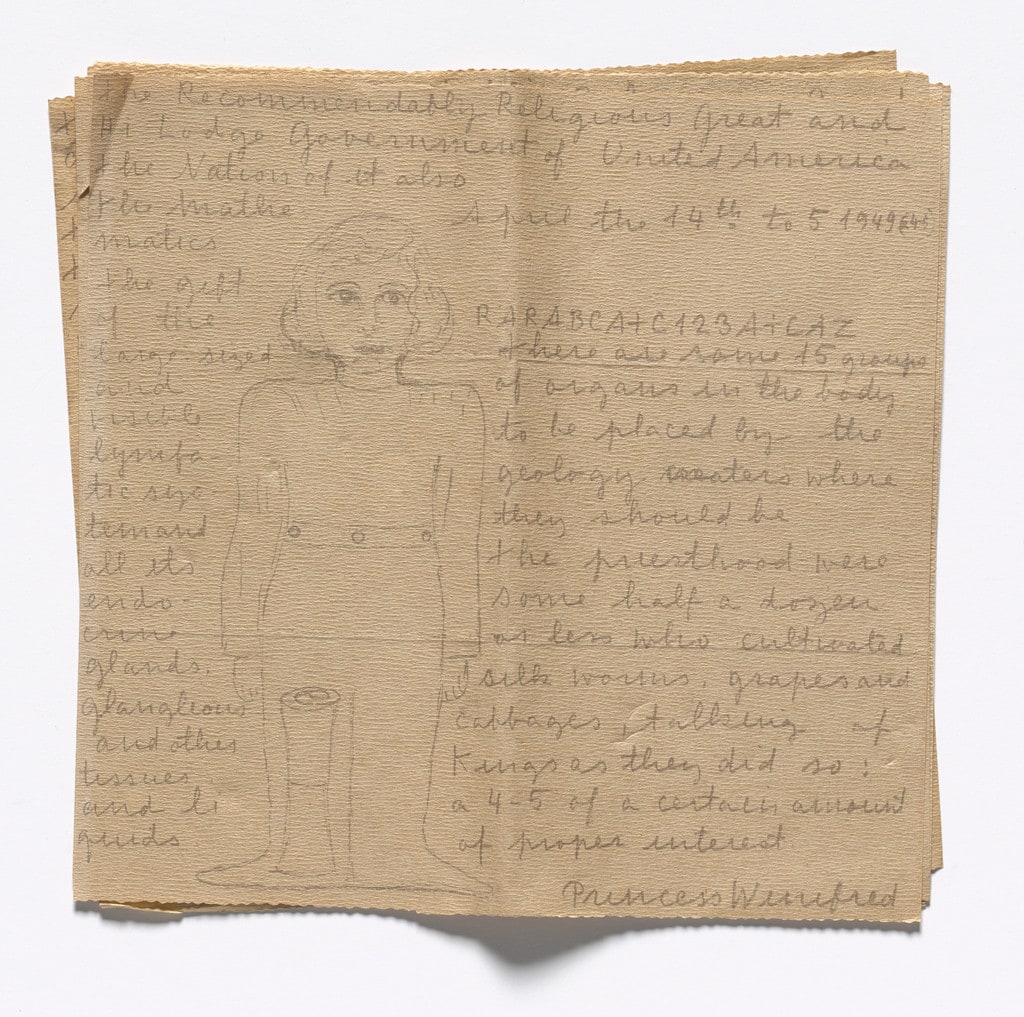 the Recommendably Religious Great and
Hi Lodge Government of United America
the Nation of it also
the Mathe
matics
the gift
of the
large sized
and
visible
lymfa-
tic sys-
tem and
all its
endo-
crine
glands.
glanglious
and other
tissues.
and li
quids
April the 14th to 5 1949
RARABCA+C123A+CAZ
there are some 15 groups
of organs in the body
to be placed by the
geology waters where
they should be
the priesthood were
some half a dozen
or less who cultivated
silk worms, grapes and
cabbages, talking of
Kings as they did so:
a 4-5 of a certain amount
of proper interest
Princess Winifred